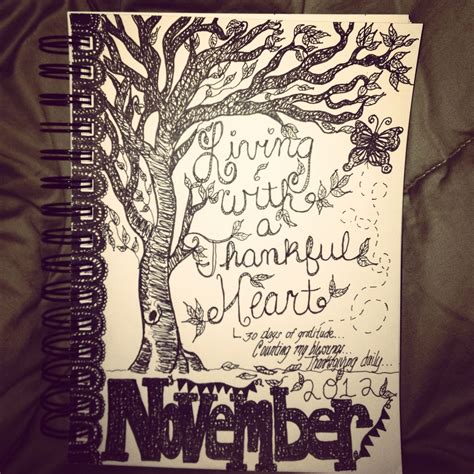 Living
with
a
Thankful
Heart
30 days of gratitude...
Counting my blessings...
Thanksgiving daily...
2012
November